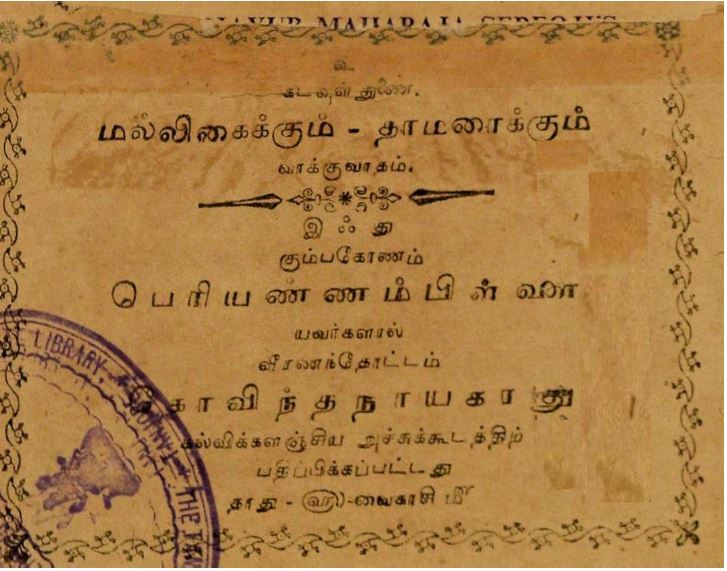 உ
கடவுள் துணை.
மல்லிகைக்கும் - தாமரைக்கும்
வாக்குவாதம்.
இஃது
கும்பகோணம்
பெரியண்ணம்பிள்ளை
யவர்களால்
வீரணந்தோட்டம்
கோவிந்தநாயகரது
கல்விக்களஞ்சிய அச்சுக்கூடத்திற்
பதிப்பிக்கப்பட்டது
தாது - ௵ - வைகாசி ௴
LIBRARY, THE